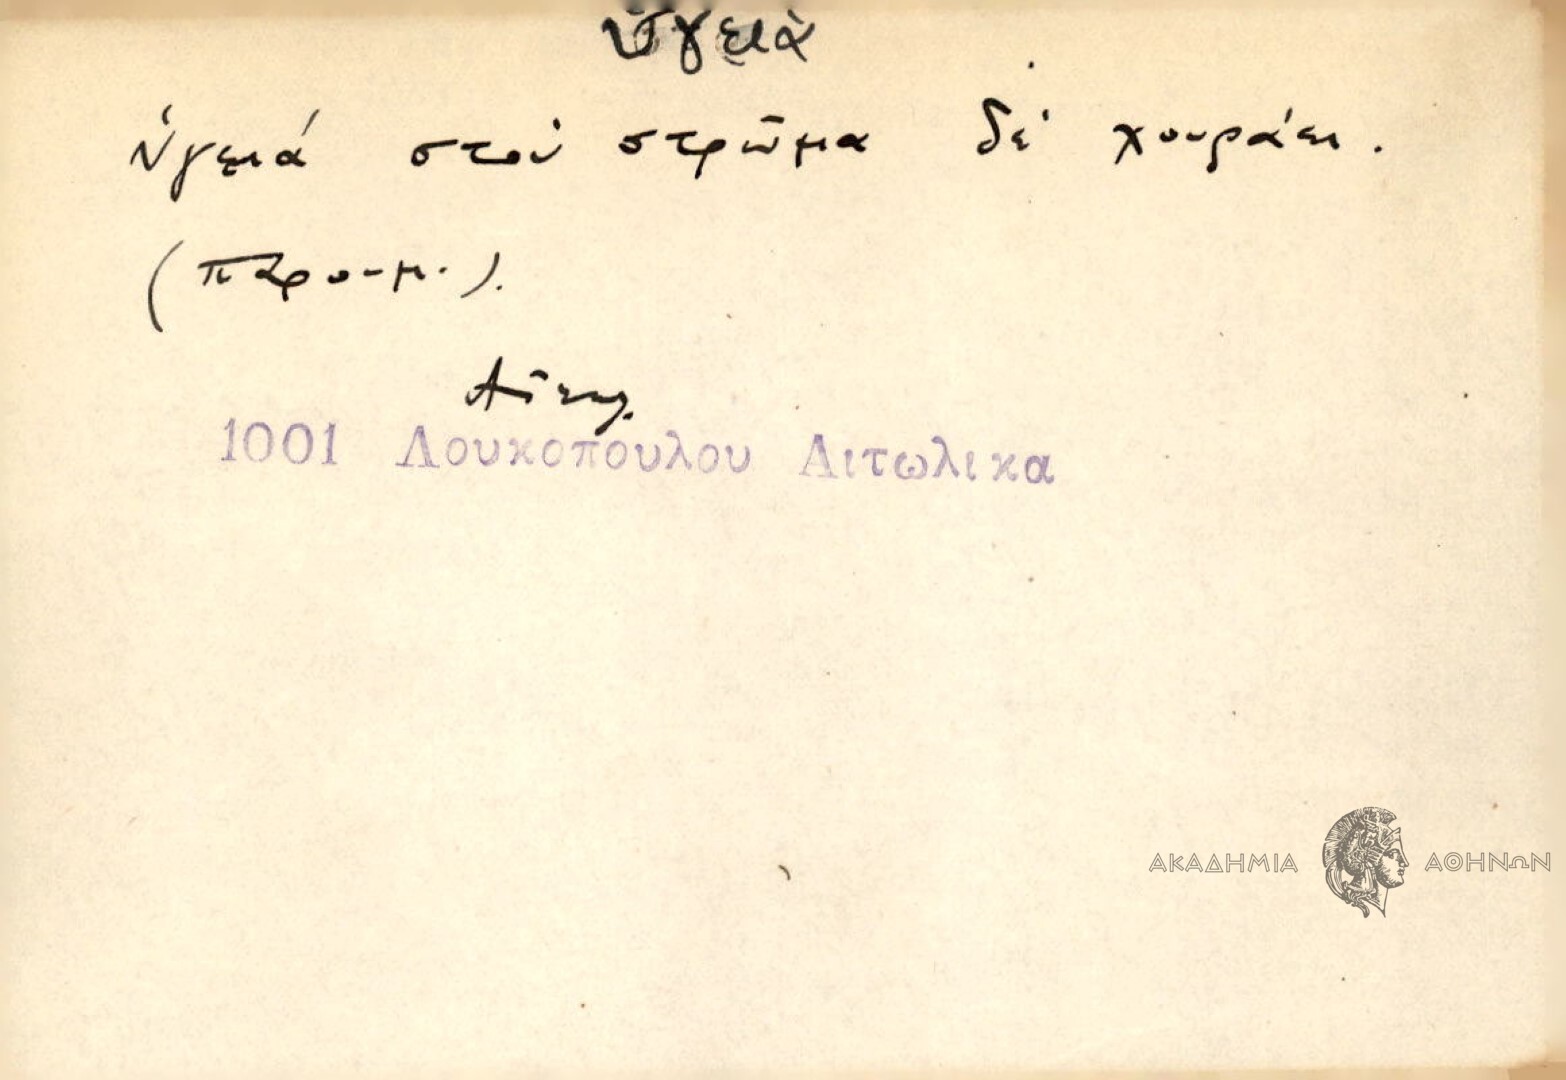 ὑγειὰ
ὑγειά στοὺ στρῶμα δὲ χουράει.
(παροιμ.).
Αἰτωλ.
1001 Λουκοπουλου Αιτωλικα
ΑΚΑΔΗΜΙΑ ΑΘΗΝΩΝ